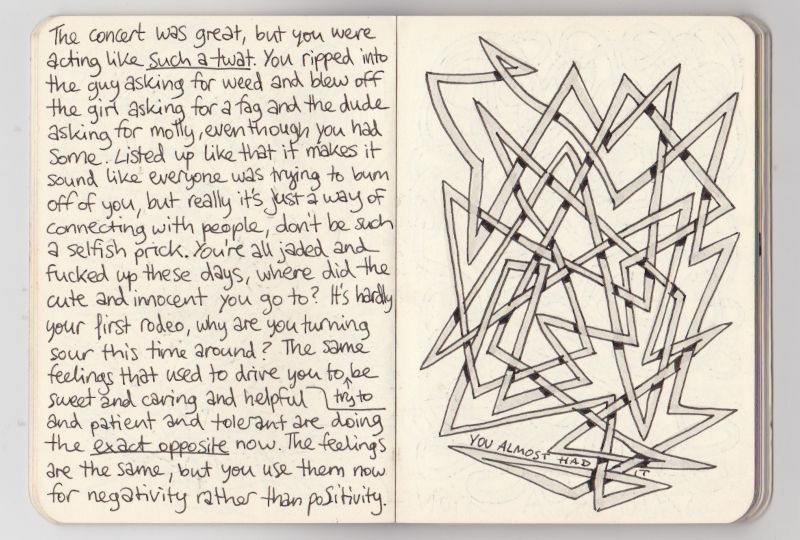 The concert was great, but you were
acting like such a twat. You ripped into
the guy asking for weed and blew off
the girl asking for a fag and the dude
asking for molly, even though you had
some. Listed up like that it makes it
sound like everyone was trying to bum
off of you, but really it's just a way of
connecting with people, don't be such
a selfish prick. You're all jaded and
fucked up these days, where did the
cute and innocent you go to? It's hardly
your first rodeo, why are you turning
sour this time around? The same
feelings that used to drive you to be
sweet and caring and helpful try to
and patient and tolerant are doing
the exact opposite now. The feelings
are the same, but you use them now
for negativity rather than positivity.
YOU ALMOST HAD IT